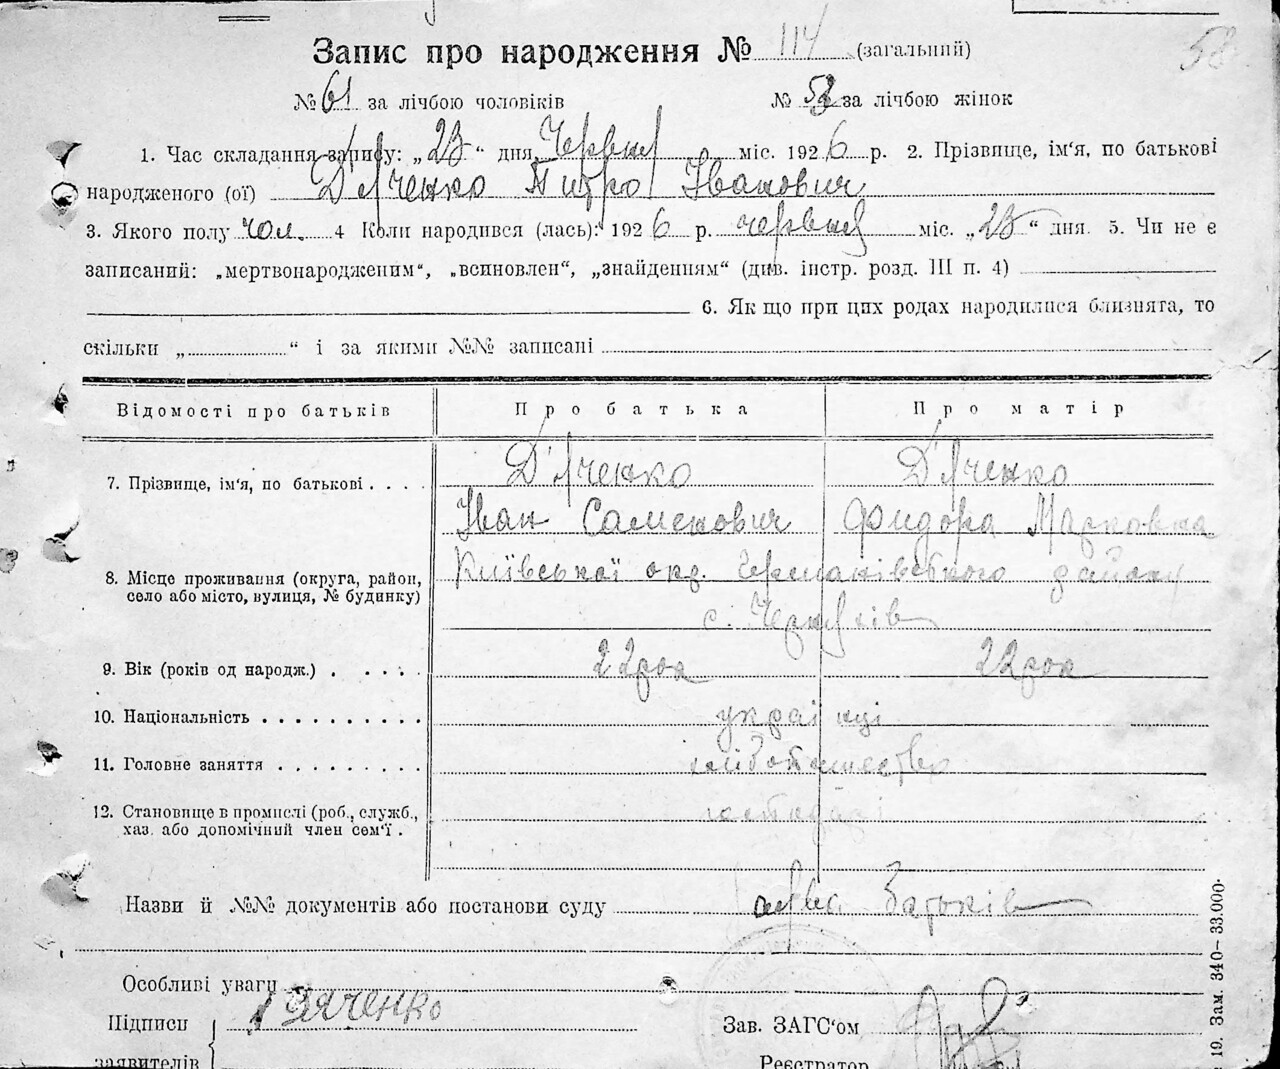 58
Запис про народження № 114 (загальний)
№ 61 за лічбою чоловіків № 53 за лічбою жінок
1. Час складання запису: „ 23 “ дня Червня міс. 192 6 р. 2. Прізвище, ім'я, по батькові
народженого (ої) Д'яченко Митро Іванович
3. Якого полу чол. 4 Коли народився (лась): 192 6 р. червня міс. „ 23 “ дня. 5. Чи не є
записаний: „мертвонародженим“, „всиновлен“, „знайденням“ (див. інстр. розд. III п. 4)
6. Як що при цих родах народилися близнята, то
скільки „ “ і за якими №№ записані
Відомості про батьків Про батька Про матір
7. Прізвище, ім'я, по батькові . . . . Д'яченко Д'яченко
Іван Саменович Фидора Марковна
8. Місце проживання (округа, район, Київської окр. Германівського району
село або місто, вулиця, № будинку) с.
9. Вік (років од народж.) . . . . . 22 рок 22 рок
10. Національність . . . . . . . . . . українці
11. Головне заняття . . . . . . . . .
12. Становище в промислі (роб., служб., господарі
хаз. або допомічний член сем'ї .
Назви й №№ документів або постанови суду батьків
Особливі уваги
Підписи Дяченко Зав. ЗАГС'ом
заявителів Реєстратор
19. Зам. 340—33.000.